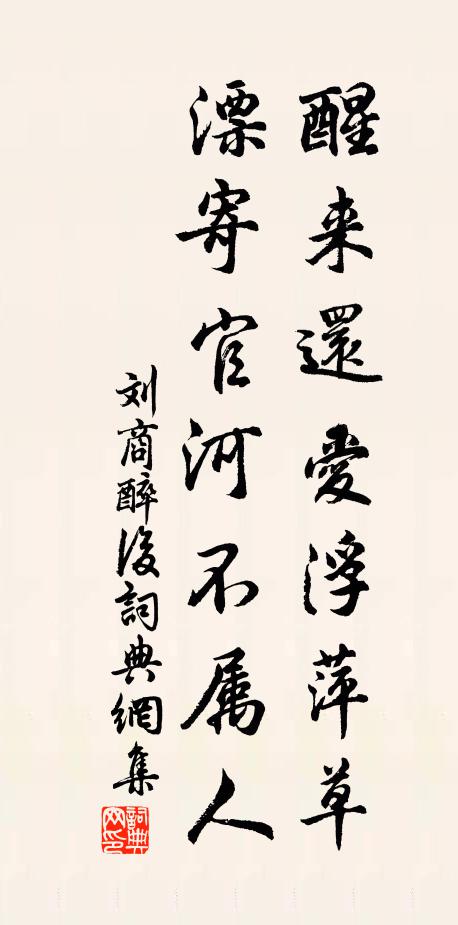 醒来還愛浮萍草
漂寄官河不属人
刘商醉後詞典網集
詞典網印